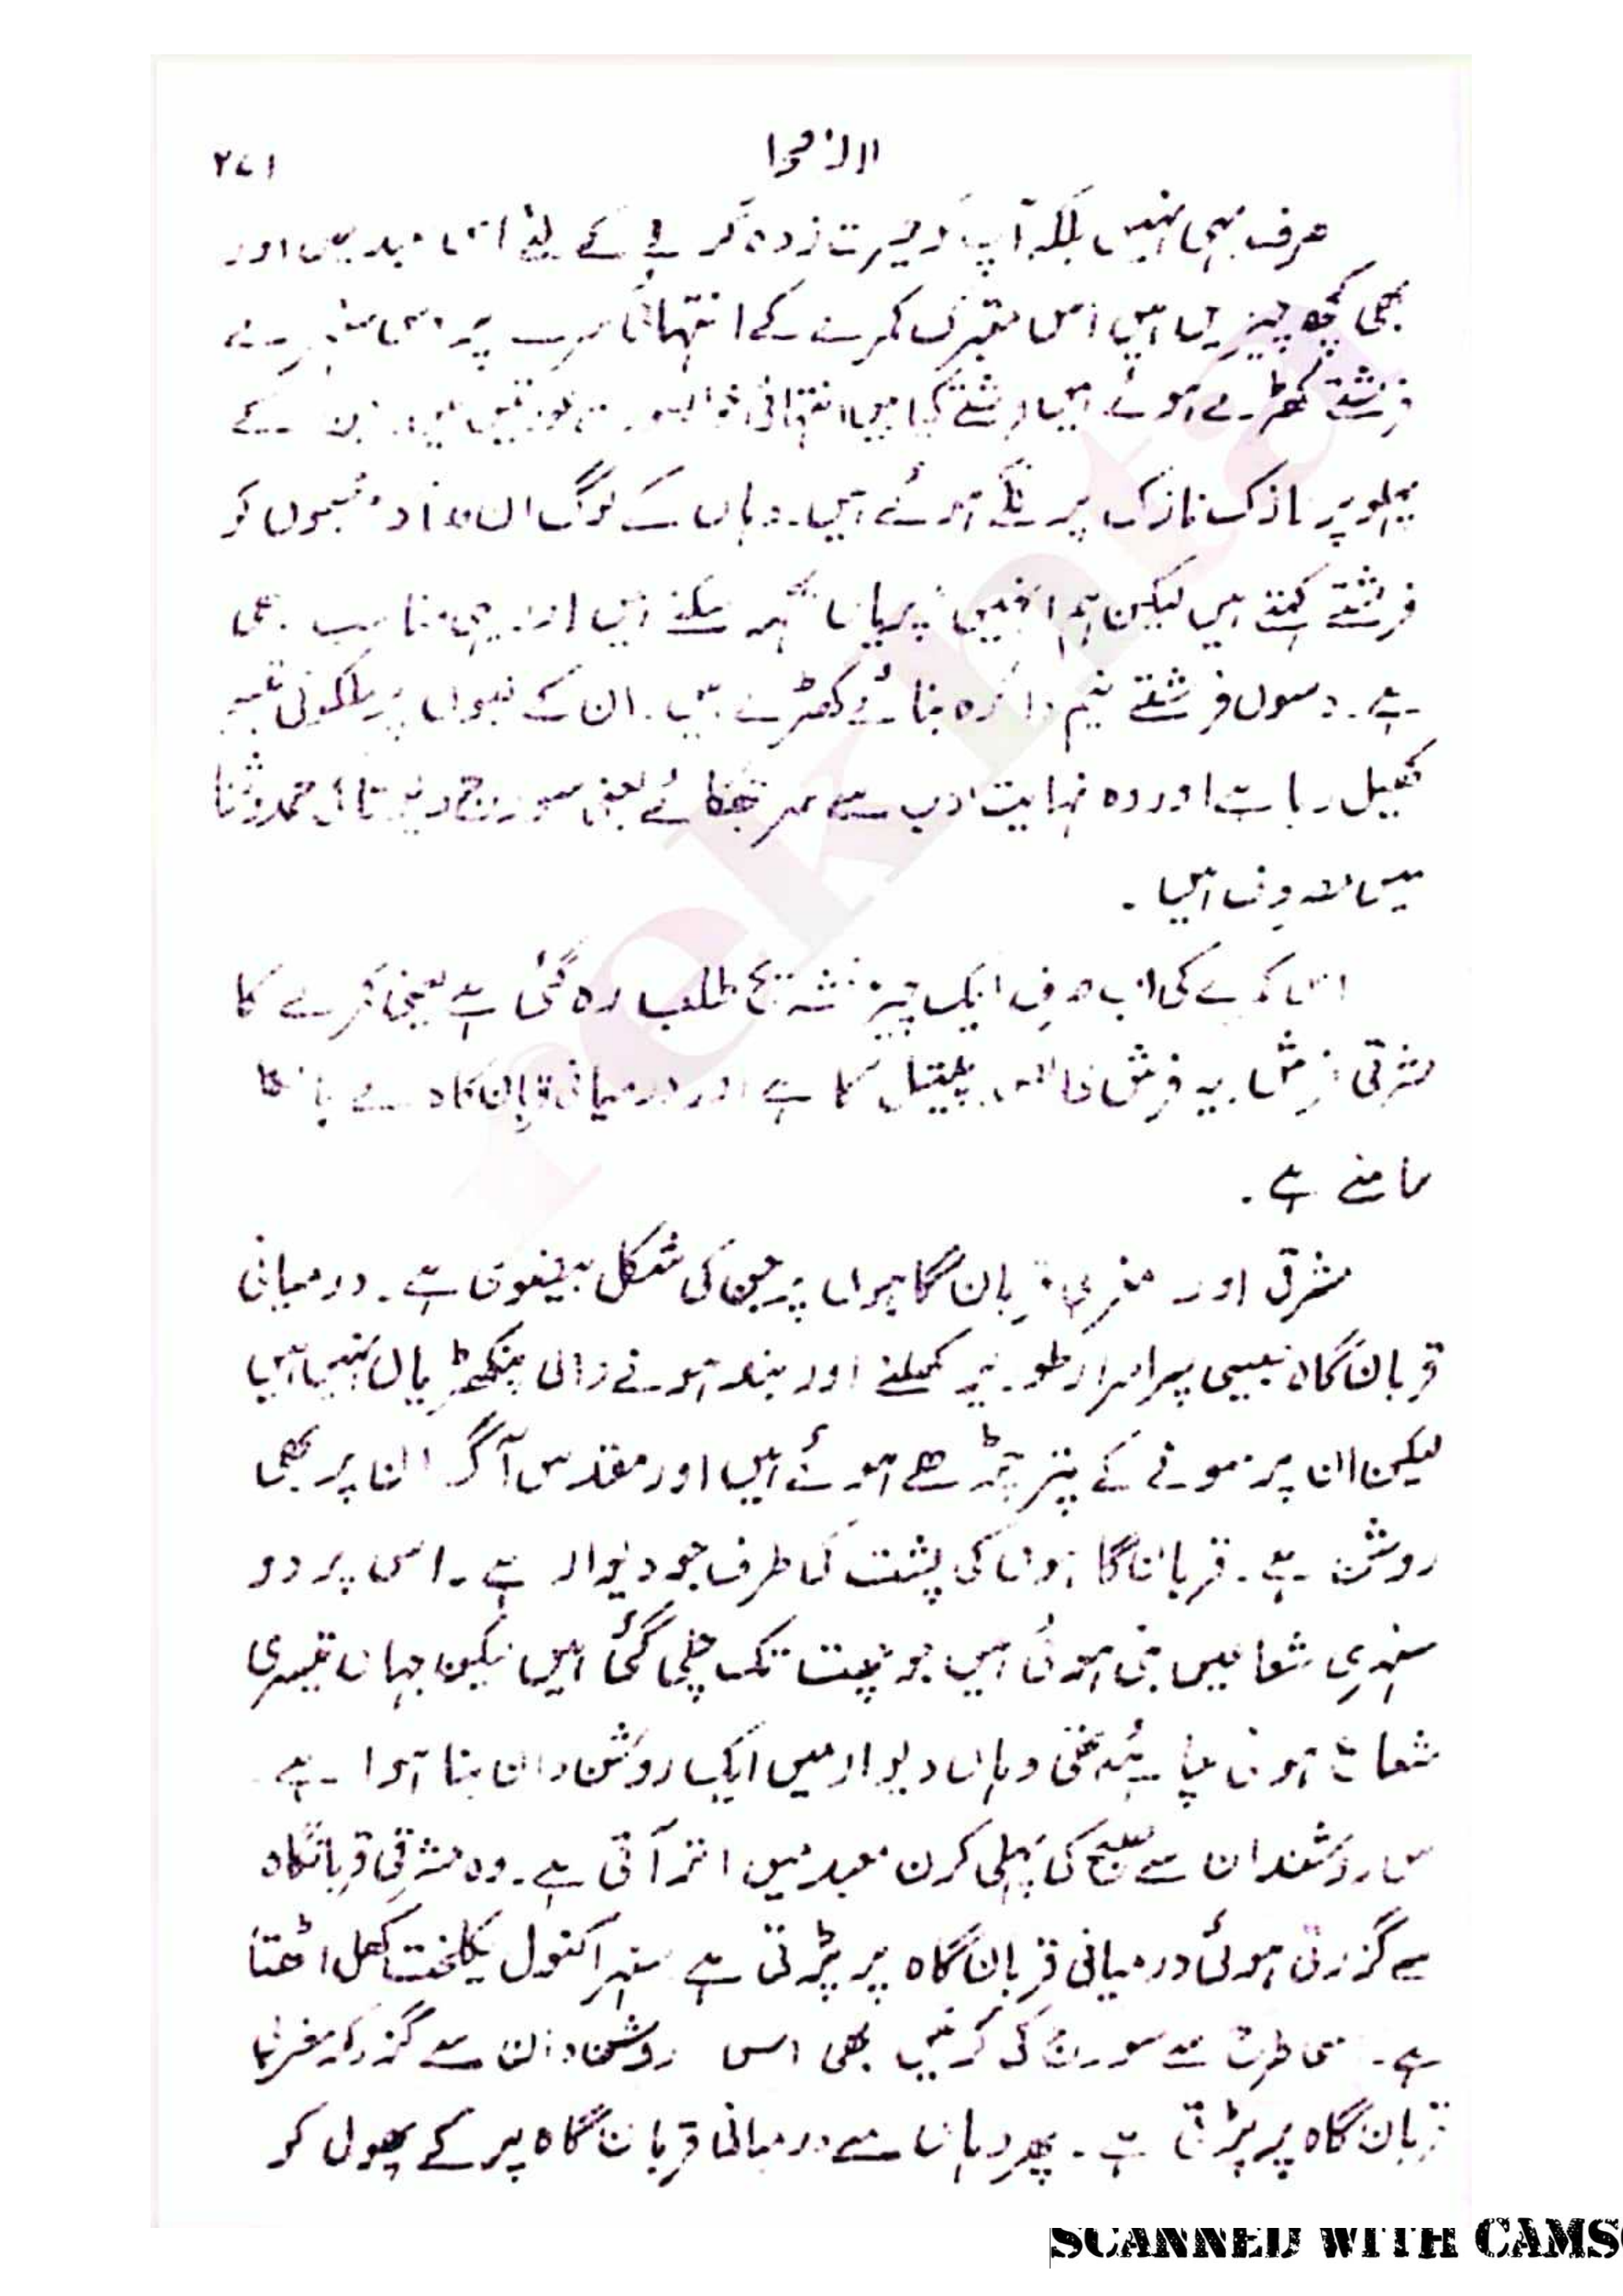 ۲۷۱
صرف یہی نہیں بلکہ آپ کو حیرت زدہ کرنے کے لئے اس معبد میں اور
بھی کچھ چیزیں ہیں اس متبرک کمرے کے انتہائی سرے پر
فرشتے کھڑے ہوئے ہیں فرشتے کیا ہیں انتہائی خوبصورت عورتیں ہیں جن کے
پہلو پر نازک نازک پر لگے ہوئے ہیں۔ وہاں کے لوگ ان مجسموں کو
فرشتے کہتے ہیں لیکن ہم انہیں پریاں کہہ سکتے ہیں اور یہی مناسب بھی
ہے۔ دسوں فرشتے نیم دائرہ بنائے کھڑے ہیں۔ ان کے لبوں پر ملکوتی تبسم
کھیل رہا ہے اور وہ نہایت ادب سے سر جھکائے یعنی سورج دیوتا کی حمد و ثنا
میں مصروف ہیں۔
اس کمرے کی اب صرف ایک چیز تشریح طلب رہ گئی ہے یعنی کمرے کا
مشرقی فرش۔ یہ فرش خالص پیتل کا ہے اور درمیانی قربان گاہ کے
سامنے ہے۔
مشرقی اور مغربی قربان گاہوں پر جن کی شکل بیضوی ہے۔ درمیانی
قربان گاہ جیسی پراسرار طور پر کھلنے اور بند ہونے والی پنکھڑیاں نہیں ہیں
لیکن ان پر سونے کے پتر چڑھے ہوئے ہیں اور مقدس آگ ان پر بھی
روشن ہے۔ قربان گاہوں کی پشت کی طرف جو دیوار ہے۔ اس پر دو
سنہری شعاعیں بنی ہوئی ہیں جو چھت تک چلی گئی ہیں لیکن جہاں تیسری
شعاع ہونی چاہئے تھی وہاں دیوار میں ایک روشن دان بنا ہوا ہے
اس روشندان سے صبح کی پہلی کرن معبد میں اتر آتی ہے۔ وہ مشرقی قربانگاہ
سے گزرتی ہوئی درمیانی قربان گاہ پر پڑتی ہے سنہرا کنول یکلخت کھل اٹھتا
ہے۔ اسی طرح سے سورج کی کرنیں بھی اس روشن دان سے گزر کر مغربی
قربان گاہ پر پڑتی ہے۔ پھر وہاں سے درمیانی قربان گاہ پر کے پھول کو
rekhta
SCANNED WITH CAMS